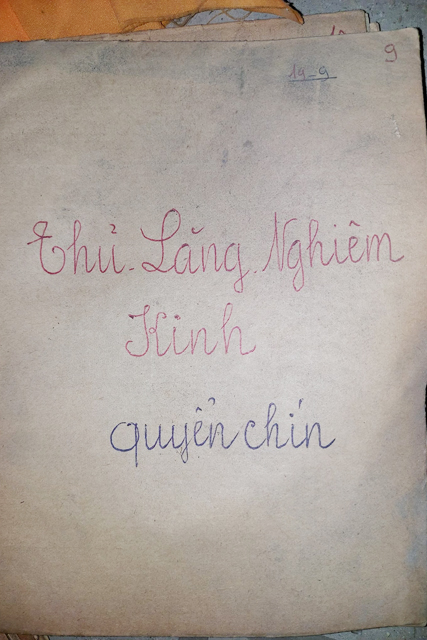 9
19-9
Thủ. Lăng. Nghiêm
Kinh
quyển chín